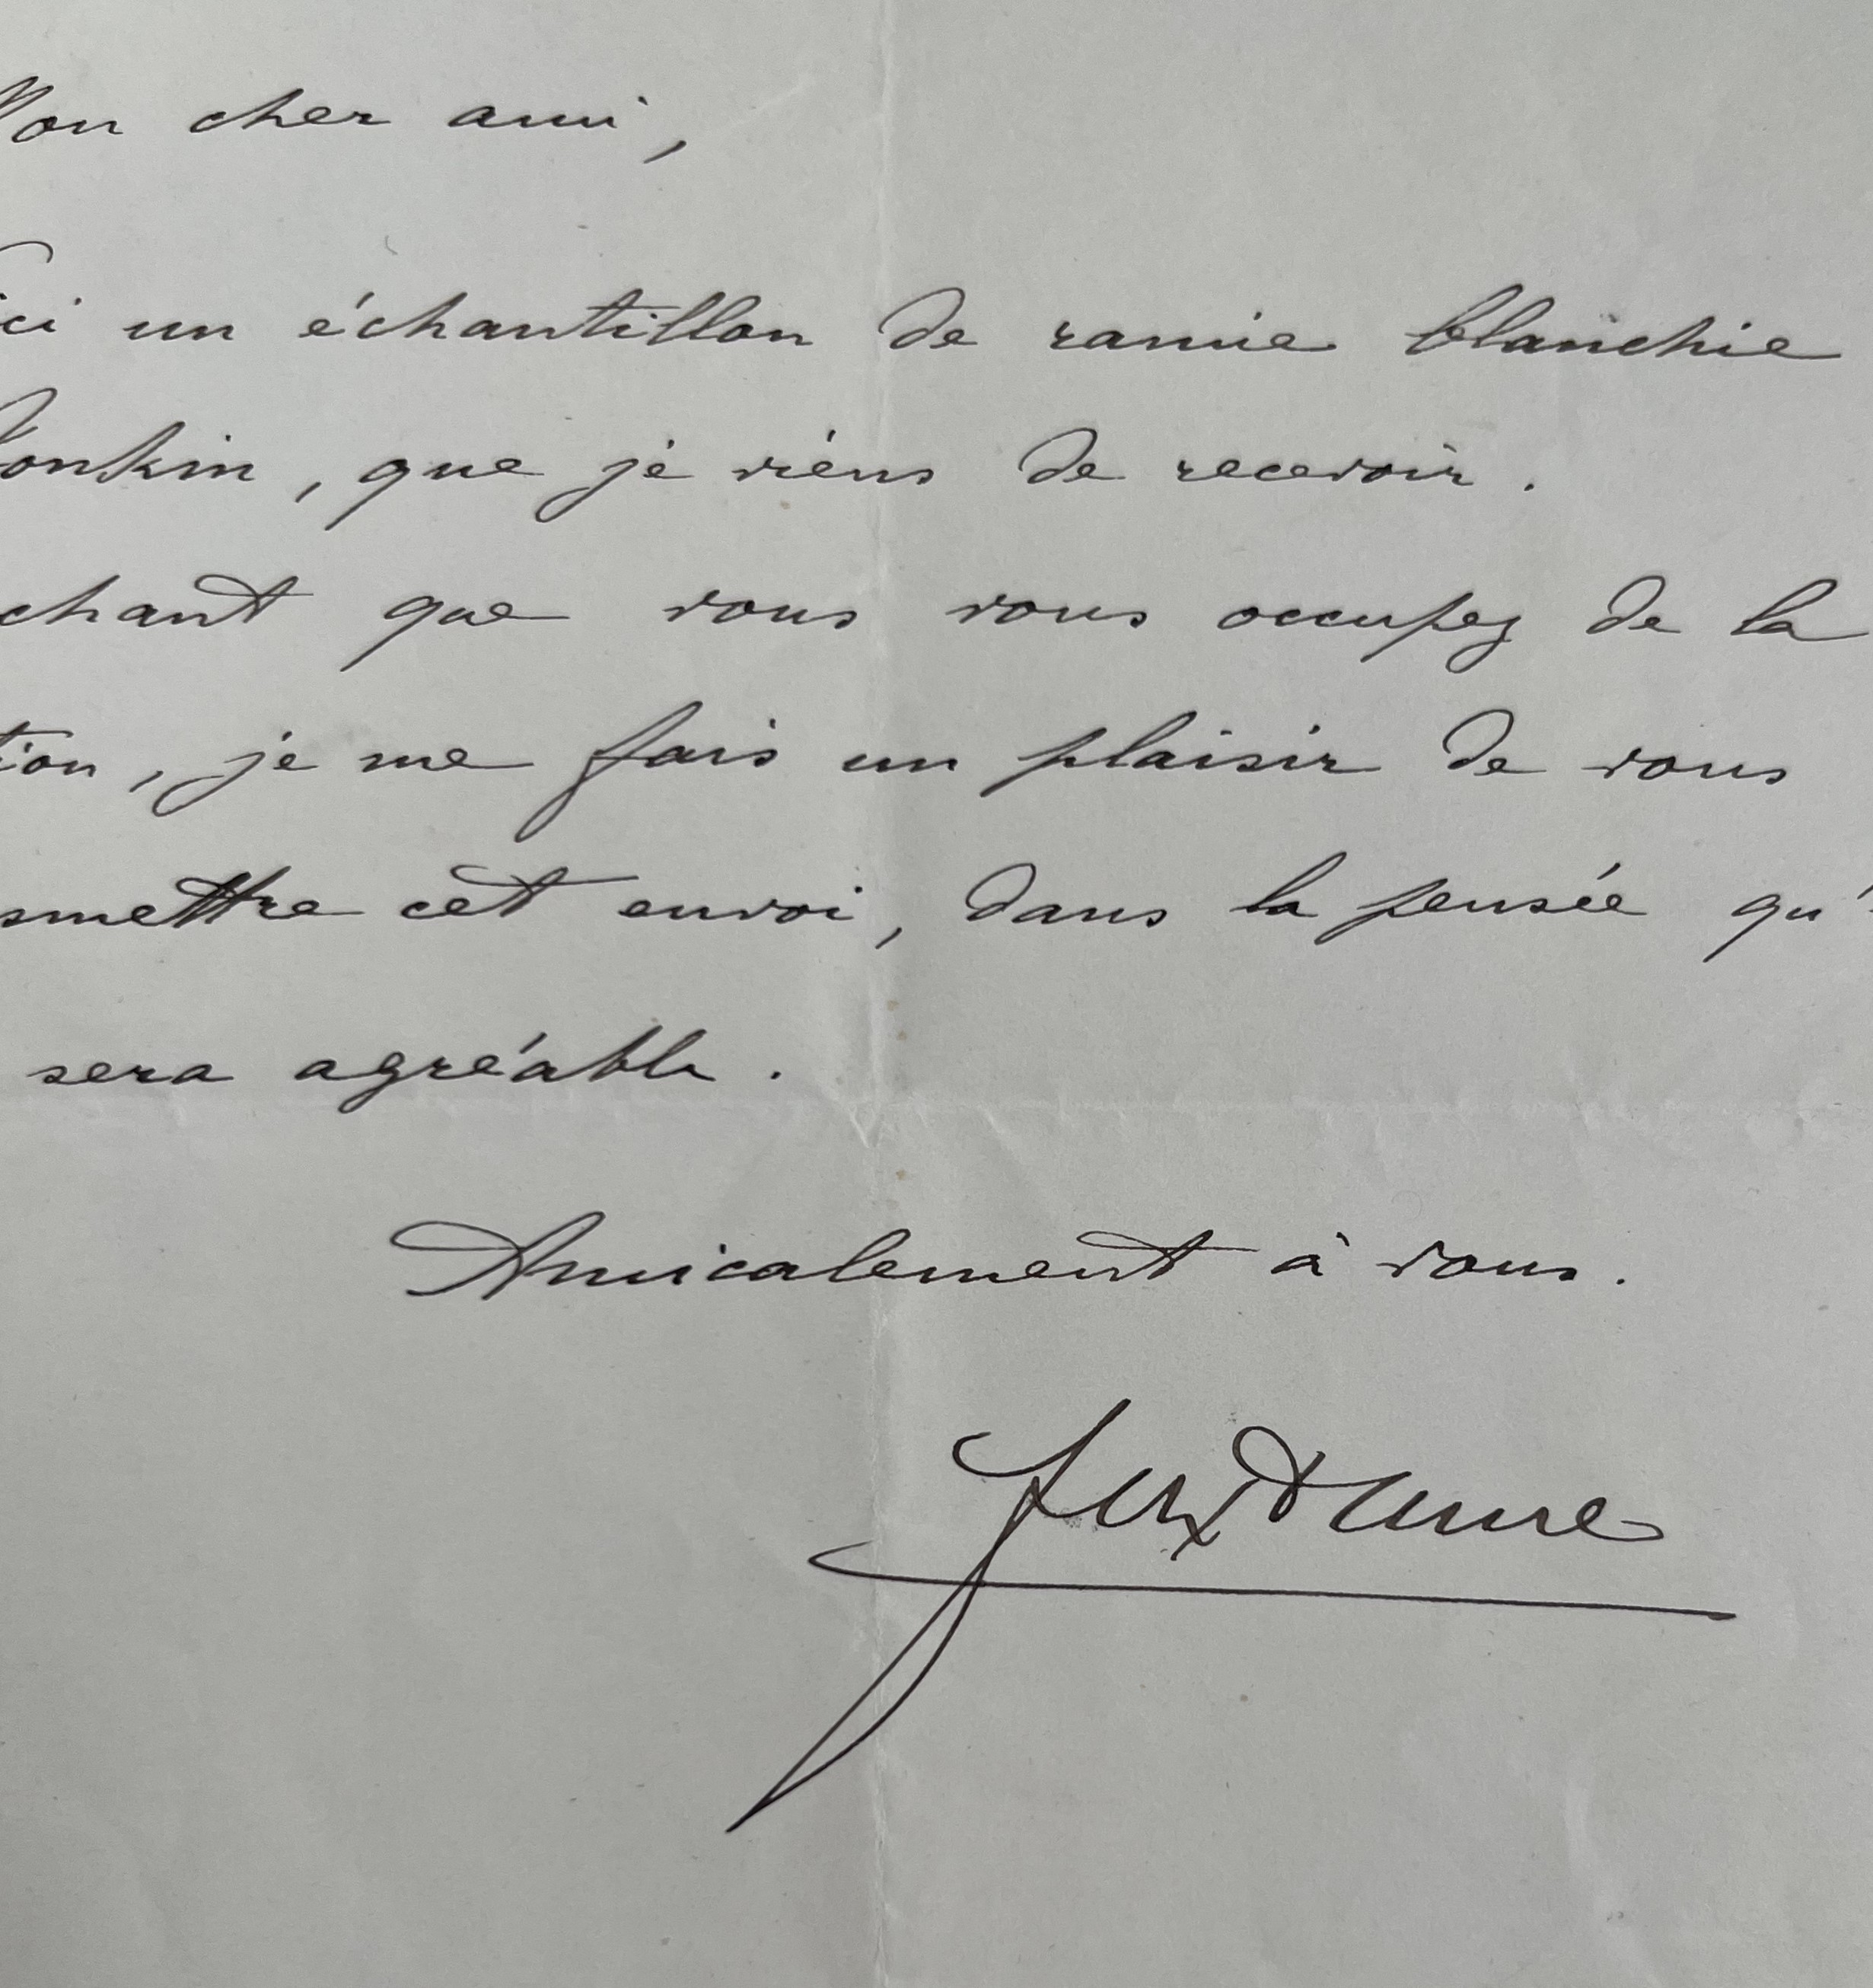 Mon cher ami,
ici un échantillon de ramie blanchie
Tonkin, que je viens de recevoir.
chant que vous vous occupez de la
tion, je me fais un plaisir de vous
smettre cet envoi, dans la pensée qu'
sera agréable.
Amicalement à vous.